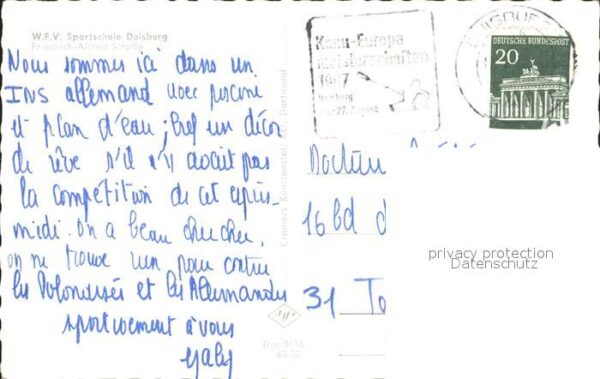 W.F.V. Sportschule Duisburg
Friedrich-Alfred-Straße
Nous sommes ici dans un
INS allemand avec piscine
et plan d'eau ; bref un décor
de rêve s'il n'y avait pas
la compétition de cet après-
midi. On a beau chercher,
on ne trouve rien pour contre
les Polonaises et les Allemandes
sportivement à vous
Kanu-Europa
meisterschaften
1967
Duisburg
27. August
DEUTSCHE BUNDESPOST
20
Cramers Kunstanstalt KG, Dortmund
Docteur
16 bd d
31 To
privacy protection
Datenschutz